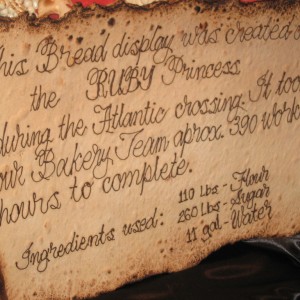 his Bread display was created o
the RUBY Princess
during the Atlantic crossing. It too
our Bakery Team aprox. 390 work
hours to complete.
Ingredients used: 110 Lbs - Flour
260 Lbs - Sugar
11 gal - Water